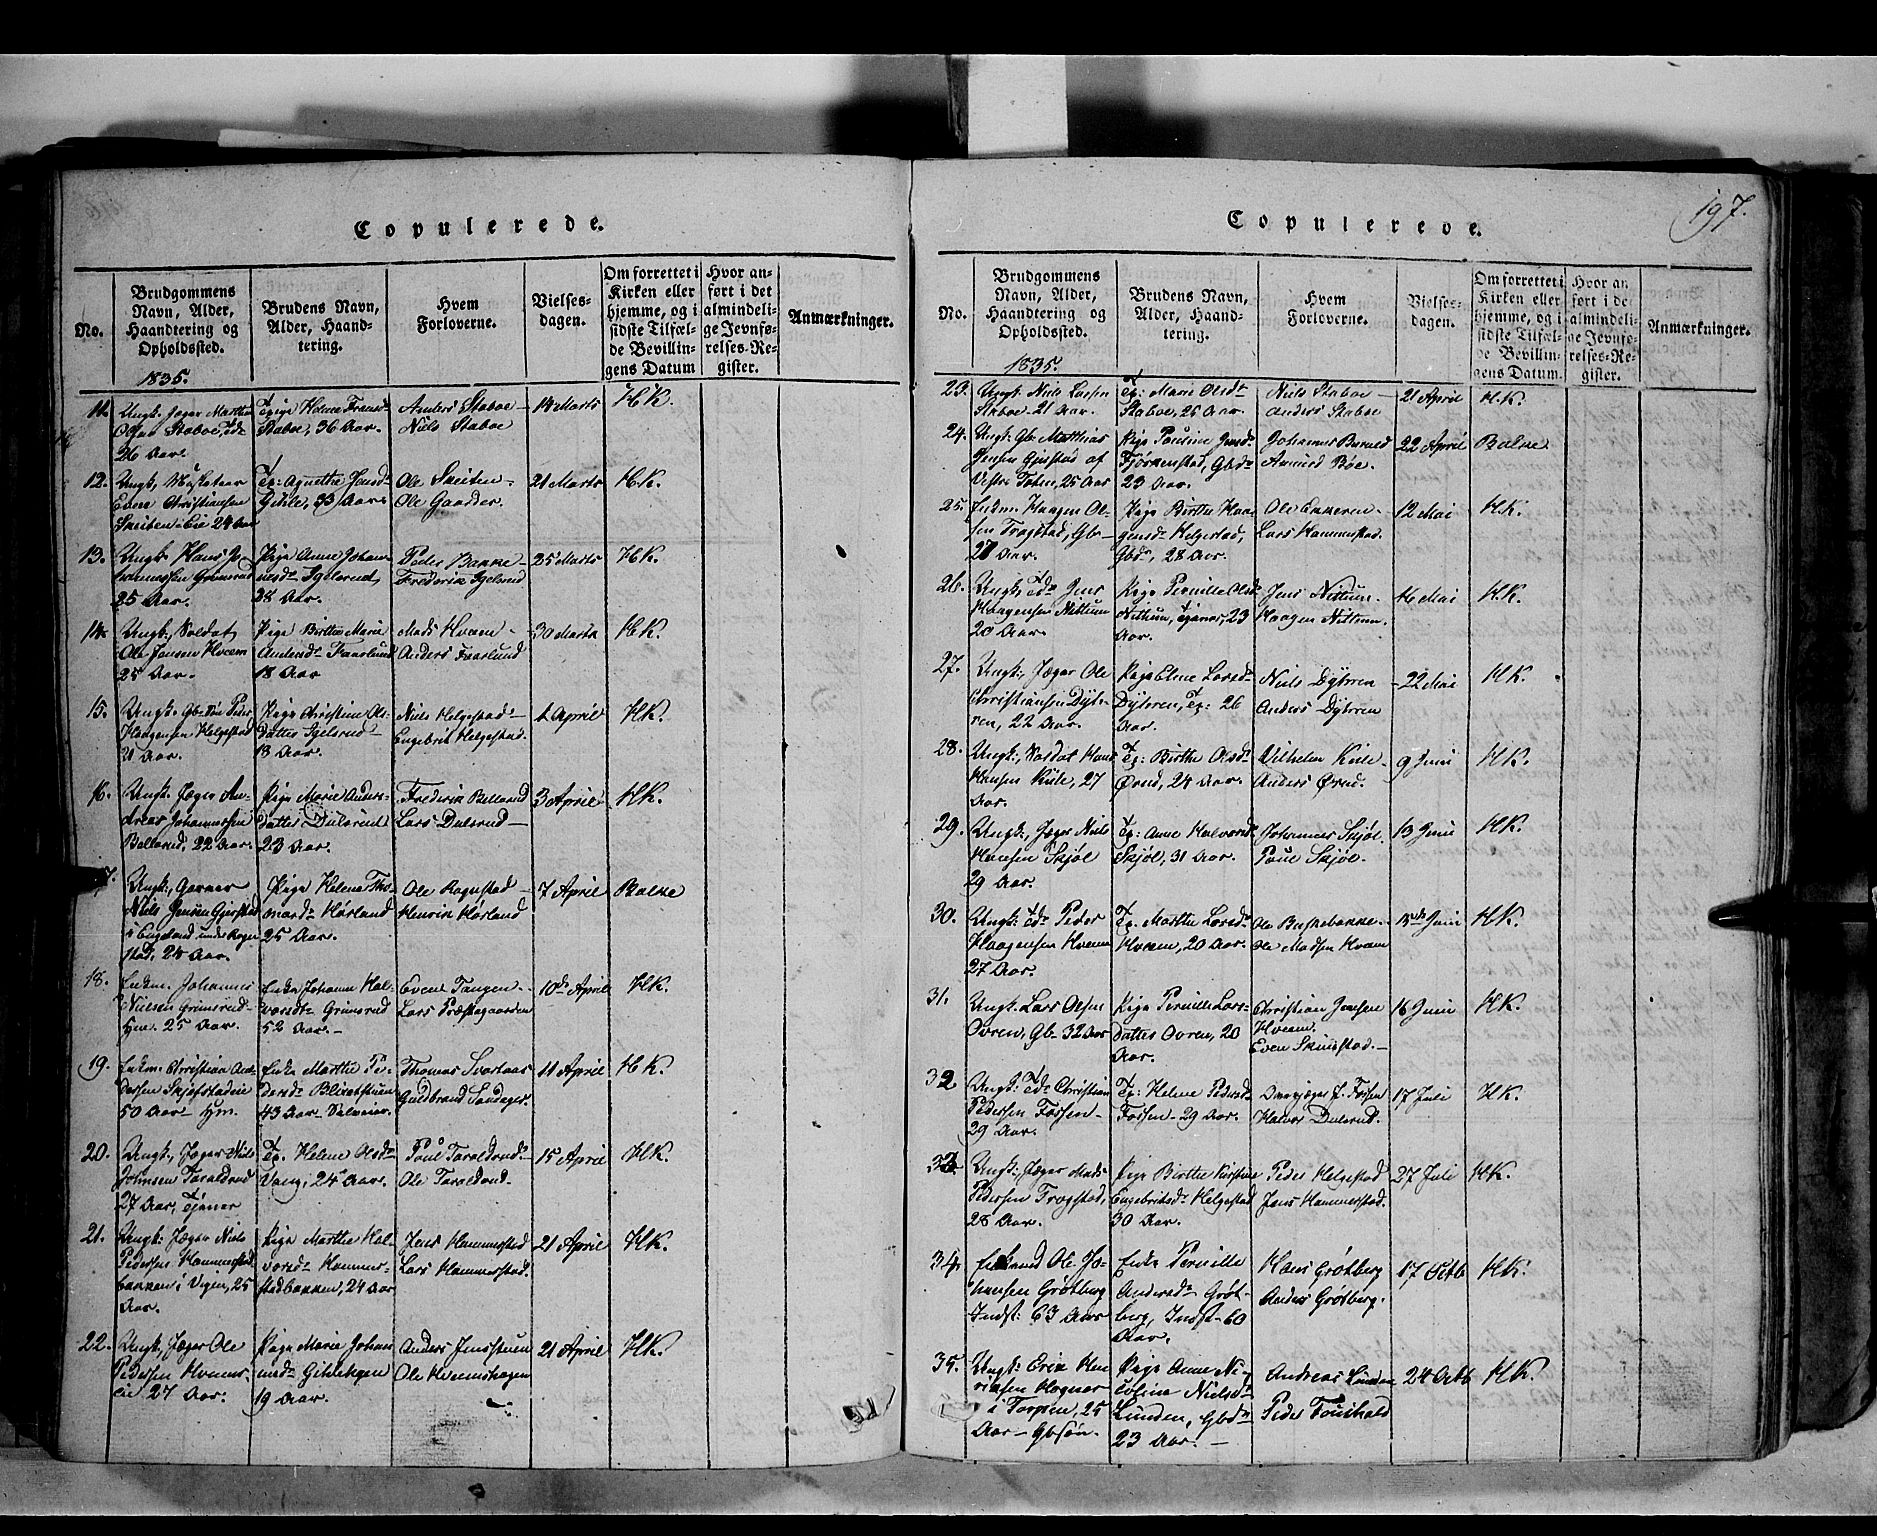 Copulerede.
No.
Brudgommens
Navn, Alder,
Haandtering og
Opholdssted.
Brudens Navn,
Alder, Haand-
tering.
Hvem
Forloverne.
Vielses-
dagen.
Om forrettet i
Kirken eller
hjemme, og i
sidste Tilfæl-
de Bevillin-
gens Datum
Hvor an-
ført i det
almindeli-
ge Jevnfø-
relses-Re-
gister.
Anmærkninger.
1835.
11. Ungk. Jæger Marthin
Olsen Staboe,
26 Aar.
Staboe, 36 Aar.
Anders Staboe
Niels Staboe
14 Marts
HK.
12. Ungk,
Even Christiansen
Sneiten Eie 24 Aar
Tj: Agnethe Jensd
33 Aar
Ole Sneiten
Ole Gaarder.
21 Marts
HK.
13. Ungk. Hans Jo-
hannessen
25 Aar.
Pige Anne Johan-
nesd Igelsrud,
28 Aar.
Peder Bakke
Frederik Igelsrud
25 Marts
HK
14. Ungk, Soldat,
Ole Jensen Hveem
25 Aar.
Pige Birthe Marie
Andersd Faarlund
18 Aar
Mads Hveem
Anders Faarlund
30 Marts
HK.
15. Ungk. Gb Søn Peder
Haagensen Helgestad
21 Aar.
Pige Christine Ols-
datter Igelsrud
18 Aar.
Niels Helgestad
Engebrit Helgestad.
1 April
HK.
16. Ungk. Jæger An-
dreas Johannessen
Bellerud, 22 Aar.
Pige Marie Anders-
datter Dulsrud
23 Aar.
Frederik Bellerud
Lars Dulsrud
3 April
HK.
17. Ungk, Garver
Niels Jensen Gjerstad
i Engeland under Rogne-
stad, 24 Aar.
Pige Helene Tho-
masd Hørland
25 Aar.
Ole Rognstad
Henrik Hørland
7 April
Balke
18. Enkm. Johannes
Nielsen Grimsrud
Hm. 25 Aar.
Enke Johanne Hal-
vorsd Grimsrud
52 Aar.
Even Tangen
Lars Præstegaarden
10de April
HK.
19. Enkm. Christian An-
dersen Skjefstadeie
50 Aar Hm.
Enke Marthe Pe-
dersd
43 Aar.
Thomas Svartaas
Guldbrand Sandager
11 April
HK.
20. Ungk, Jæger Niels
Johnsen Taraldrud
27 Aar, Tjener
Tj. Helene Olsd
Vang, 24 Aar.
Poul Taraldrud
Ole Taraldrud.
15 April
HK.
21. Ungk. Jæger Niels
Pedersen Hammerstad
bakken i Vigen, 25
Aar.
Pige Marthe Hal-
vorsd Hammer-
stadbakken, 24 Aar
Jens Hammerstad
Lars Hammerstad.
21 April
HK.
22. Ungk, Jæger Ole
Pedersen Hveems
eie 27 Aar.
Pige Marie Johan-
nesd Gihlehagen
19 Aar.
Anders Jensstuen
Ole Hveemshagen
21 April
HK.
Copulerede.
197.
No.
Brudgommens
Navn, Alder,
Haandtering og
Opholdssted.
Brudens Navn,
Alder, Haand-
tering.
Hvem
Forloverne.
Vielses-
dagen.
Om forrettet i
Kirken eller
hjemme, og i
sidste Tilfæl-
de Bevillin-
gens Datum.
Hvor an
ført i de
almindeli-
ge Jevnfø-
relses-Re-
gister.
Anmærkninger.
1835.
23. Ungk. Niels Larsen
Staboe 21 Aar.
Tj: Marie Olsd
Staboe, 25 Aar.
Niels Staboe
Anders Staboe
21 April
H.K.
24. Ungk: Gb. Matthias
Jensen Gjerstad af
Vestre Toten, 25 Aar
Pige Pouline Jensd
Fjørkenstad, Gbd
23 Aar.
Johannes
Amund Bøe.
22 April
Balke
25. Enkm. Haagen Ol-
sen Trogstad, Gb
27 Aar.
Pige Birthe Haa-
gensd Helgestad,
Gbd, 28 Aar.
Ole Eckeren
Lars Hammerstad.
12 Mai
H.K.
26. Ungk, Jens
Haagensen Nettum
20 Aar.
Pige Pernille Olsd
Nettum, Tjener, 23
Aar.
Jens Nettum
Haagen Nettum
16 Mai
H.K.
27. Ungk, Jæger Ole
Christiansen Dyhr-
ren, 22 Aar.
Pige Elene Larsd
Dyhrren, Tj: 26
Aar.
Niels Dyhrren
Anders Dyhrren
22 Mai
HK.
28. Ungk, Soldat Hans
Hansen Kiile, 27
Aar.
Tj: Birthe Olsd
Ørud, 24 Aar.
Vilhelm Kiile
Anders Ørud.
9 Juni
HK.
29. Ungk, Jæger Niels
Hansen Skjøl
29 Aar.
Tj: Anne Halvorsd
Skjøl, 31 Aar.
Johannes Skjøl
Poul Skjøl.
13 Juni
HK.
30. Ungk: Peder
Haagensen Hveem
27 Aar.
Tj. Marthe Larsd
Hveem, 20 Aar.
Ole Buskebakke
Ole Madsen Hveem
15de Juni
HK.
31. Ungk. Lars Olsen
Ovren, Gb 32 Aar
Pige Pernille Lars-
datter Ovren, 20
Aar.
Christian Jensen
Hveem.
Even Skimstad.
16 Juni
HK.
32. Ungk: Christian
Pedersen Fossen
29 Aar.
Tj: Helene Pedersd
Fossen 29 Aar.
J. Fossen
Halvor Dulsrud.
17 Juli
HK.
33. Ungk: Jæger Mads
Pedersen Trogstad,
28 Aar.
Pige Birthe Kirstine
Engebritsd Helgestad
30 Aar.
Peder Helgestad
Jens Hammerstad.
27 Juli
HK.
34. Enkemand Ole Jo-
hansen Grøtberg
Indst: 63 Aar
Enke Pernille
Andersd Grøt-
berg, Indst 60
Aar.
Hans Grøtberg
Anders Grøtberg.
17 Octb
HK.
35. Ungk: Erik Hen-
riksen Hogner
i Torpen, 25
Aar Gbsøn.
Pige Anne Ni-
coline Nielsd
Lunden, Gbd
23 Aar.
Andreas Lunden
Peder
24 Octb
HK.